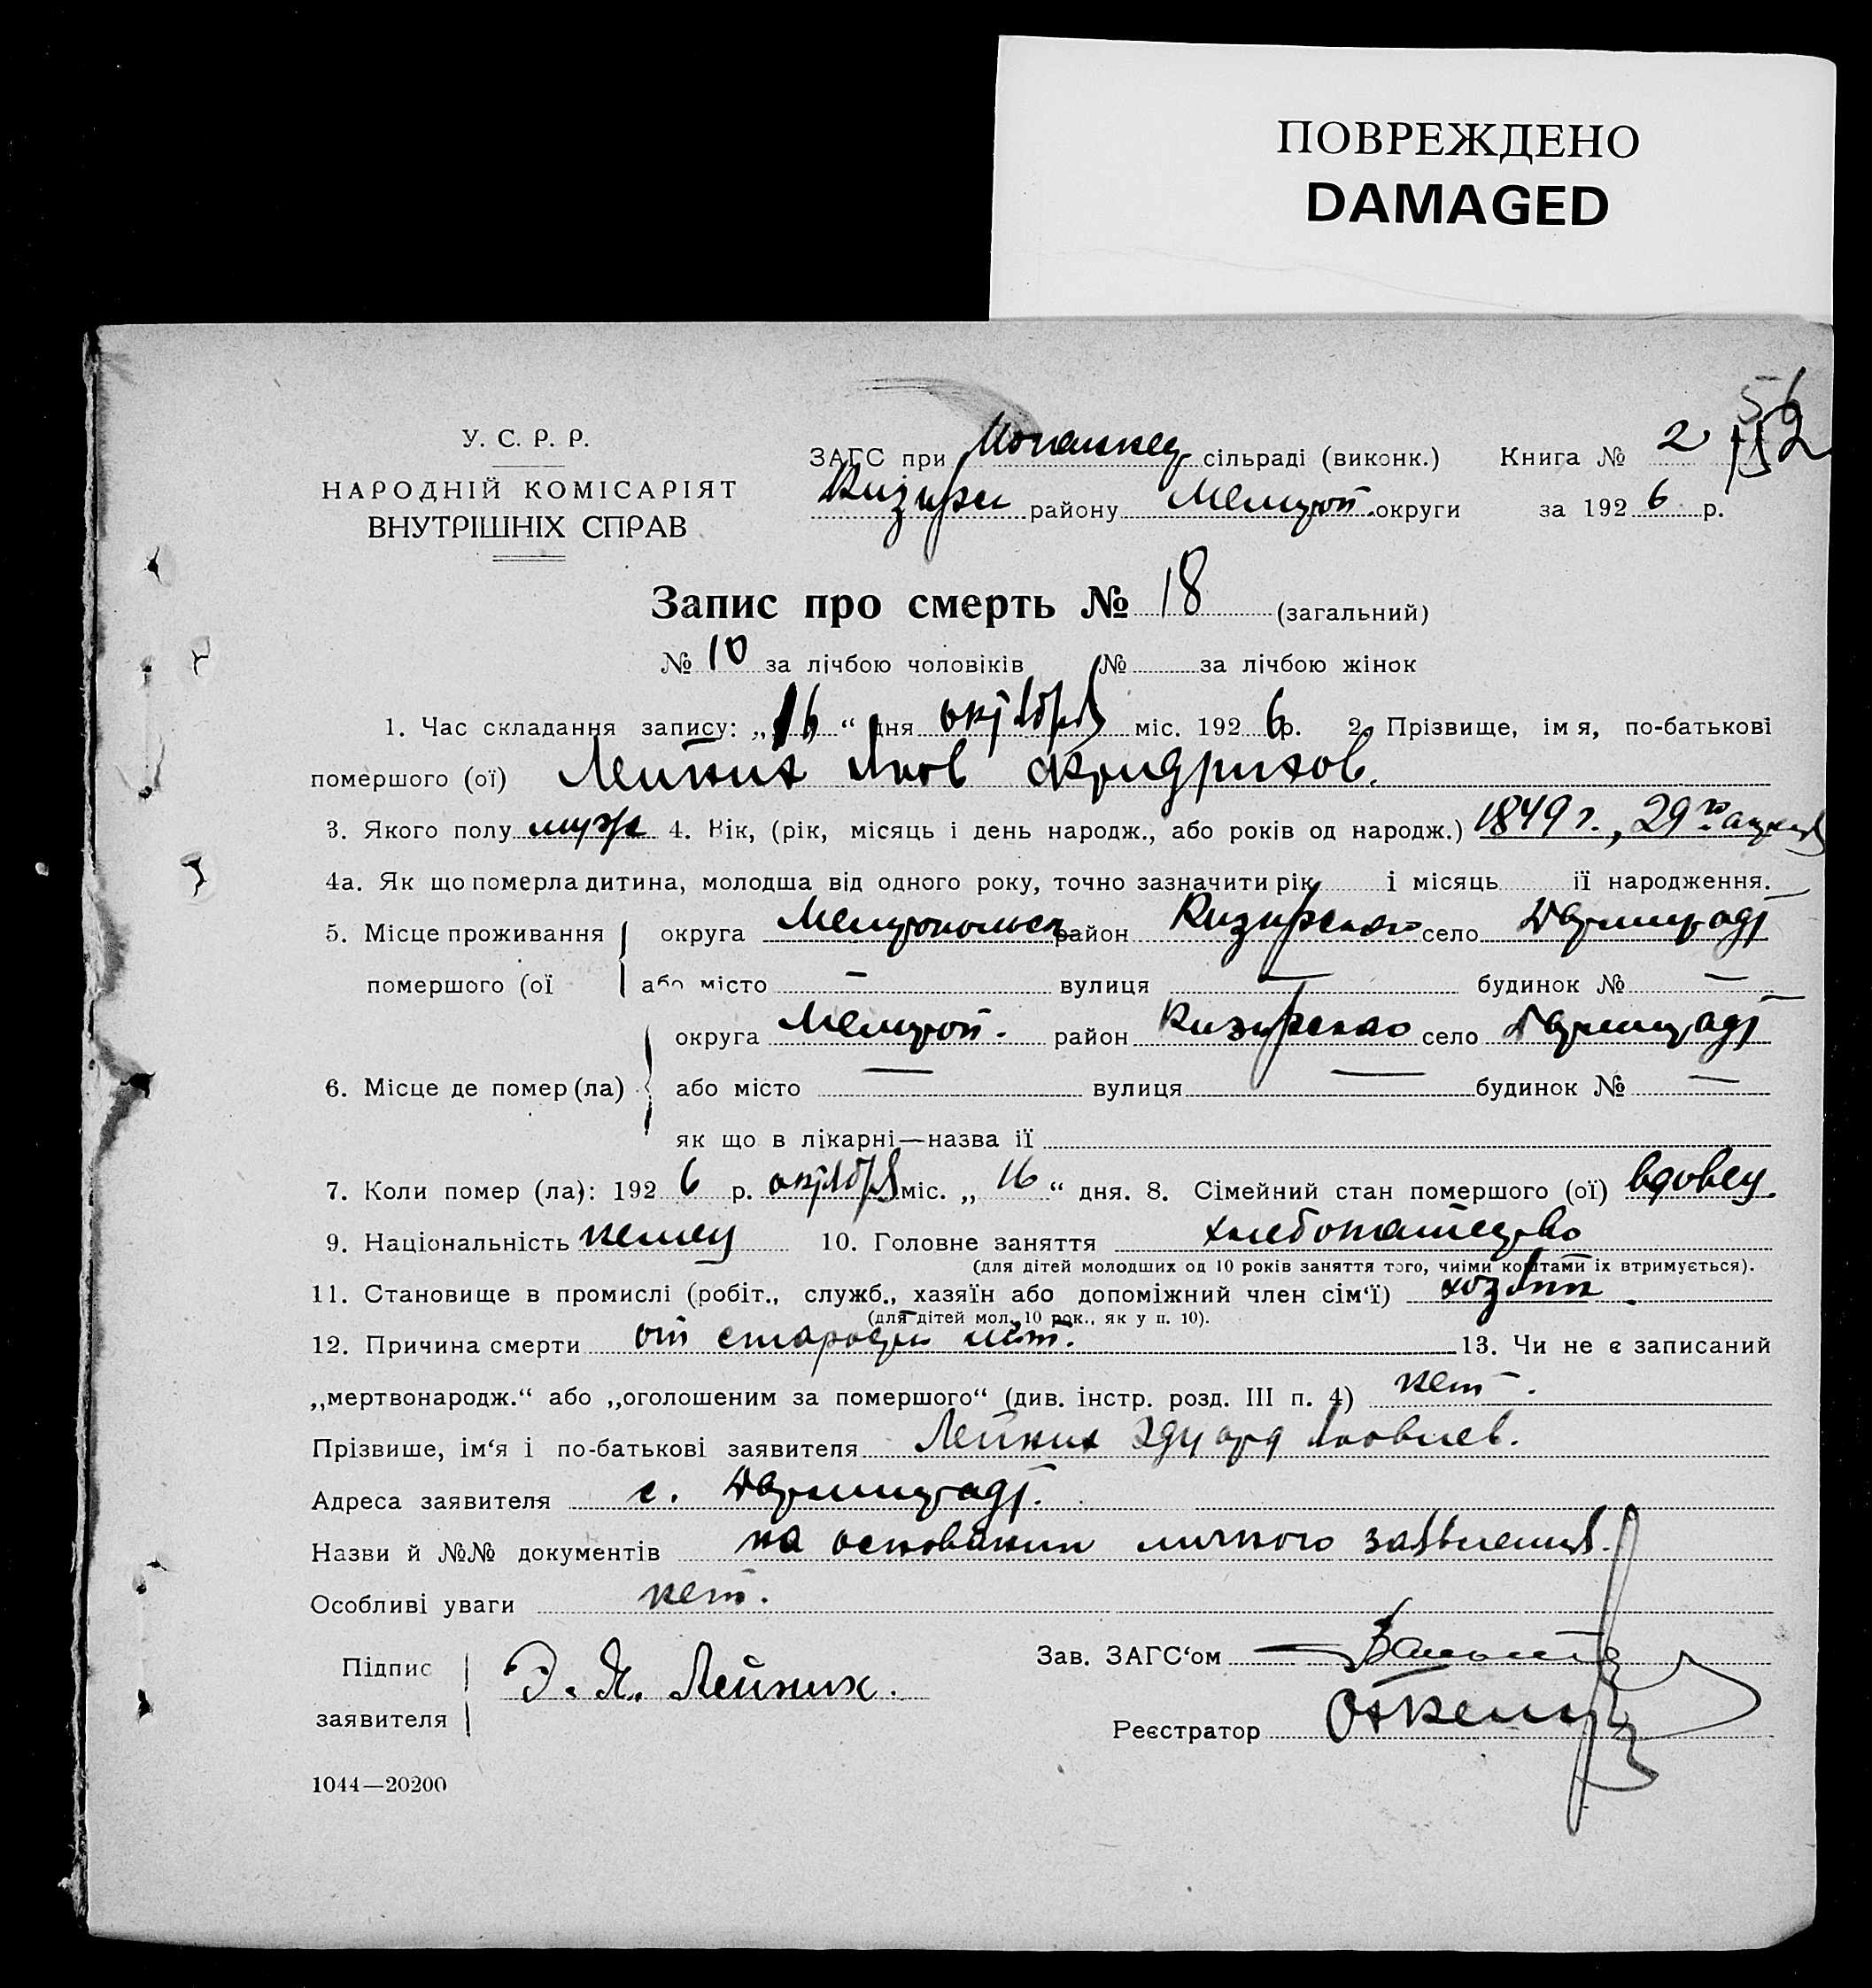 ПОВРЕЖДЕНО
DAMAGED
56
У. С. Р. Р.
НАРОДНІЙ КОМІСАРІЯТ
ВНУТРІШНІХ СПРАВ
ЗАГС при сільраді (виконк.) Книга № 2
района Мелитоп. округи за 192 6 р.
Запис про смерть № 18 (загальний)
№ 10 за лічбою чоловіків № за лічбою жінок
1. Час складання запису: „16“ дня октября міс. 192 6 р. 2. Прізвище, імя, по-батькові
помершого (ої) Лейних Яков Фридрихов.
3. Якого полу муж 4. Вік, (рік, місяць і день народж., або років од народж.) 1849 г., 29го
4а. Як що померла дитина, молодша від одного року, точно зазначити рік і місяць її народження.
5. Місце проживання округа Мелитопольск район Кизиярского село Дармштадт
помершого (ої або місто — вулиця — будинок № —
округа Мелитоп. район Кизиярского село Дармштадт
6. Місце де помер (ла) або місто — вулиця — будинок № —
як що в лікарні—назва її
7. Коли помер (ла): 192 6 р. октября міс. „16“ дня. 8. Сімейний стан помершого (ої) вдовец.
9. Національність немец 10. Головне заняття хлебопашество
(для дітей молодших од 10 років заняття того, чиїми коштами їх втримується).
11. Становище в промислі (робіт., служб., хазяїн або допоміжний член сім‘ї) хозяин.
(для дітей мол. 10 рок., як у п. 10).
12. Причина смерти от старости лет. 13. Чи не є записаний
„мертвонародж.“ або „оголошеним за помершого“ (див. інстр. розд. III п. 4) нет.
Прізвише, ім‘я і по-батькові заявителя Лейних Эдуард Яковлев.
Адреса заявителя с. Дармштадт.
Назви й №№ документів на основании личного заявления.
Особливі уваги нет.
Підпис Э. Я. Лейних. Зав. ЗАГС‘ом
заявителя Реєстратор
1044—20200